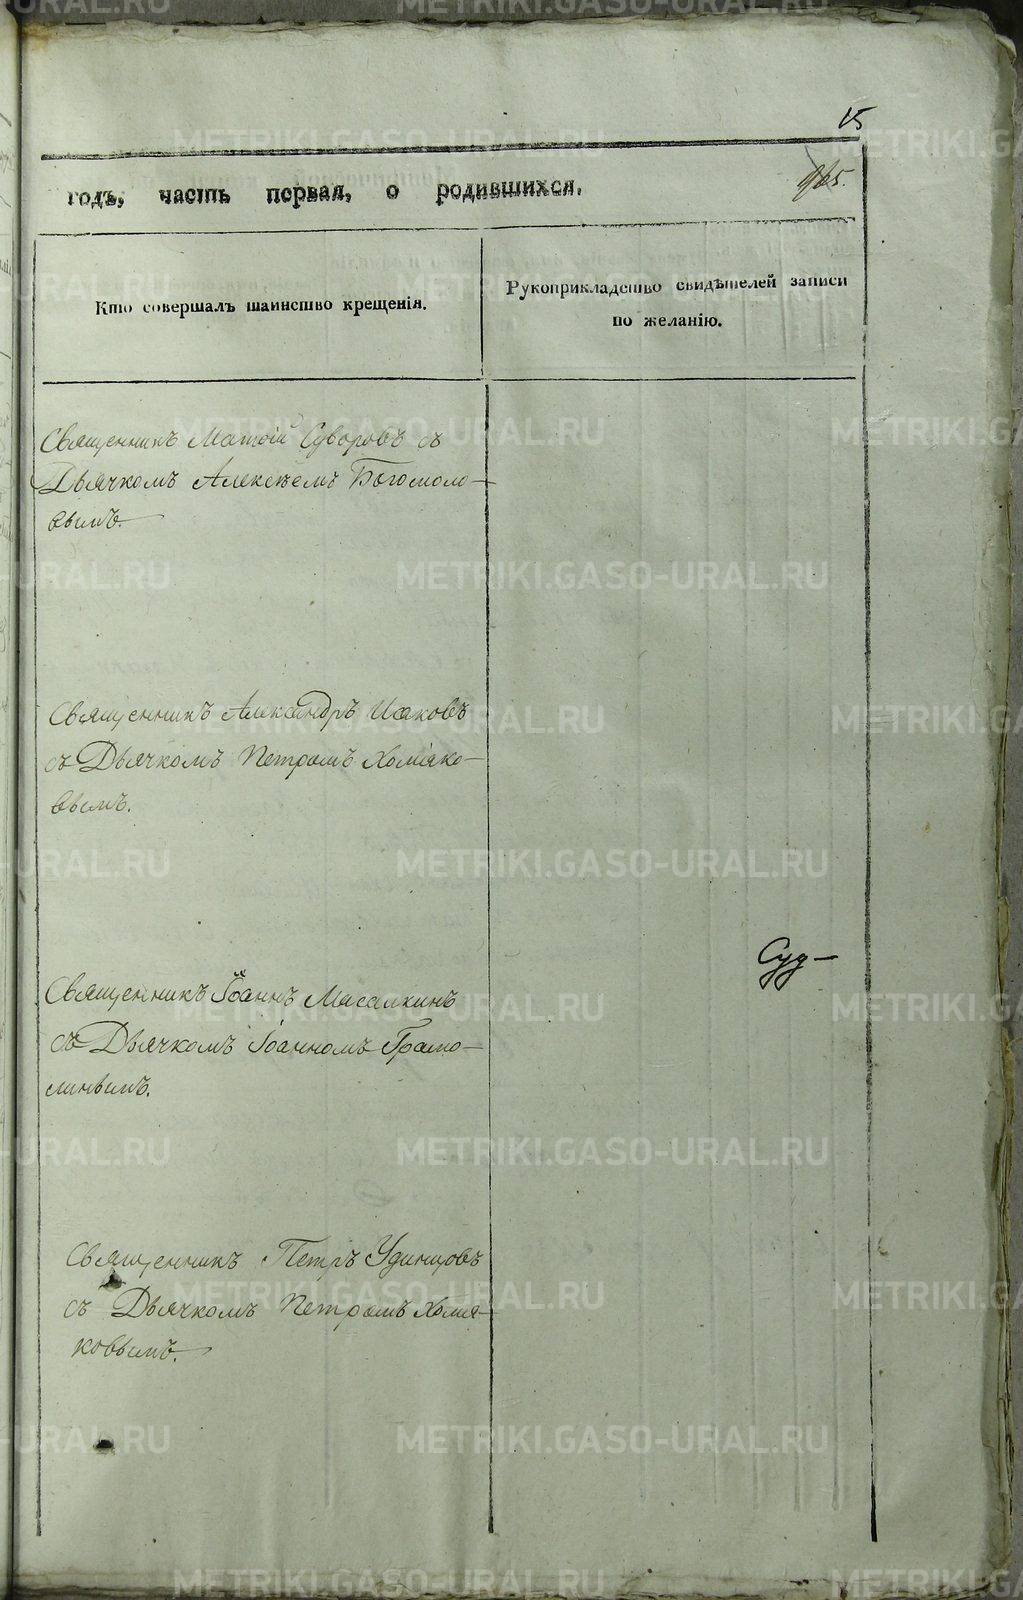 15
965.
годъ, часть первая, о родившихся.
Кто совершалъ таинство крещенія.
Рукоприкладство свидѣтелей записи
по желанію.
Священникъ Матѳій Суворовъ съ
Дьячкомъ Алексѣемъ Богомоло-
вымъ.
Священникъ Александръ Исаковъ
съ Дьячкомъ Петромъ Хомяко-
вымъ.
Суд-
Священникъ Іоаннъ Масалкинъ
съ Дьячкомъ Іоанномъ Грамо-
линымъ.
Священникъ Петръ Удинцовъ
съ Дьячкомъ Петромъ Хомя-
ковымъ.
METRIKI.GASO-URAL.RU